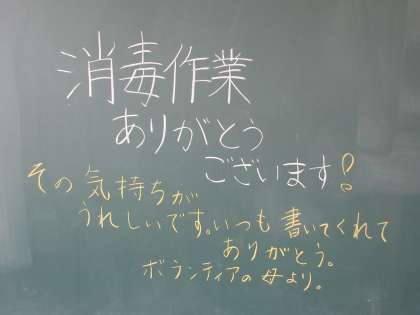 消毒作業
ありがとう
ございます!
その気持ちが
うれしいです。いつも書いてくれて
ありがとう。
ボランティアの母より。